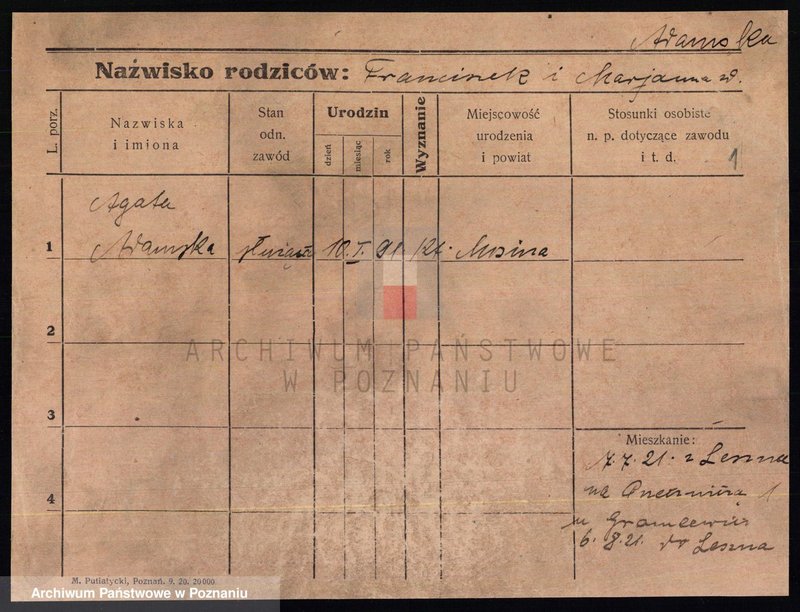 Adamska
Nazwisko rodziców: Franciszek i Marjanna
L. porz.
Nazwiska
i imiona
Stan
odn.
zawód
Urodzin
dzień
miesiąc
rok
Wyznanie
Miejscowość
urodzenia
i powiat
Stosunki osobiste
n. p. dotyczące zawodu
i t. d.
1
Agata
1 Adamska służąca 10. I. 91 kt. Mosina
2
ARCHIWUM PAŃSTWOWE
W POZNANIU
3
Mieszkanie:
7.7.21. z Leszna
4
na 1
u
6. 8.21. do Leszna
M. Putiatycki, Poznań. 9. 20. 20000
Archiwum Państwowe w Poznaniu